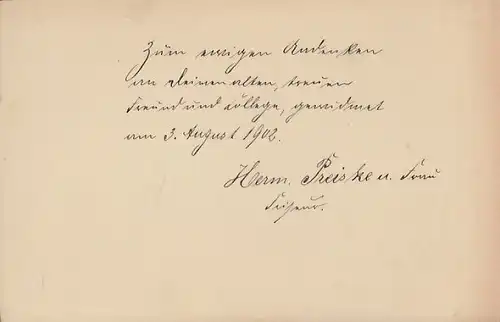 Zum ewigen Andenken
an Deinen alten, treuen
Freund und College, gewidmet
am 3. August 1902.
Herm. Preiske u. Frau
Friseur.